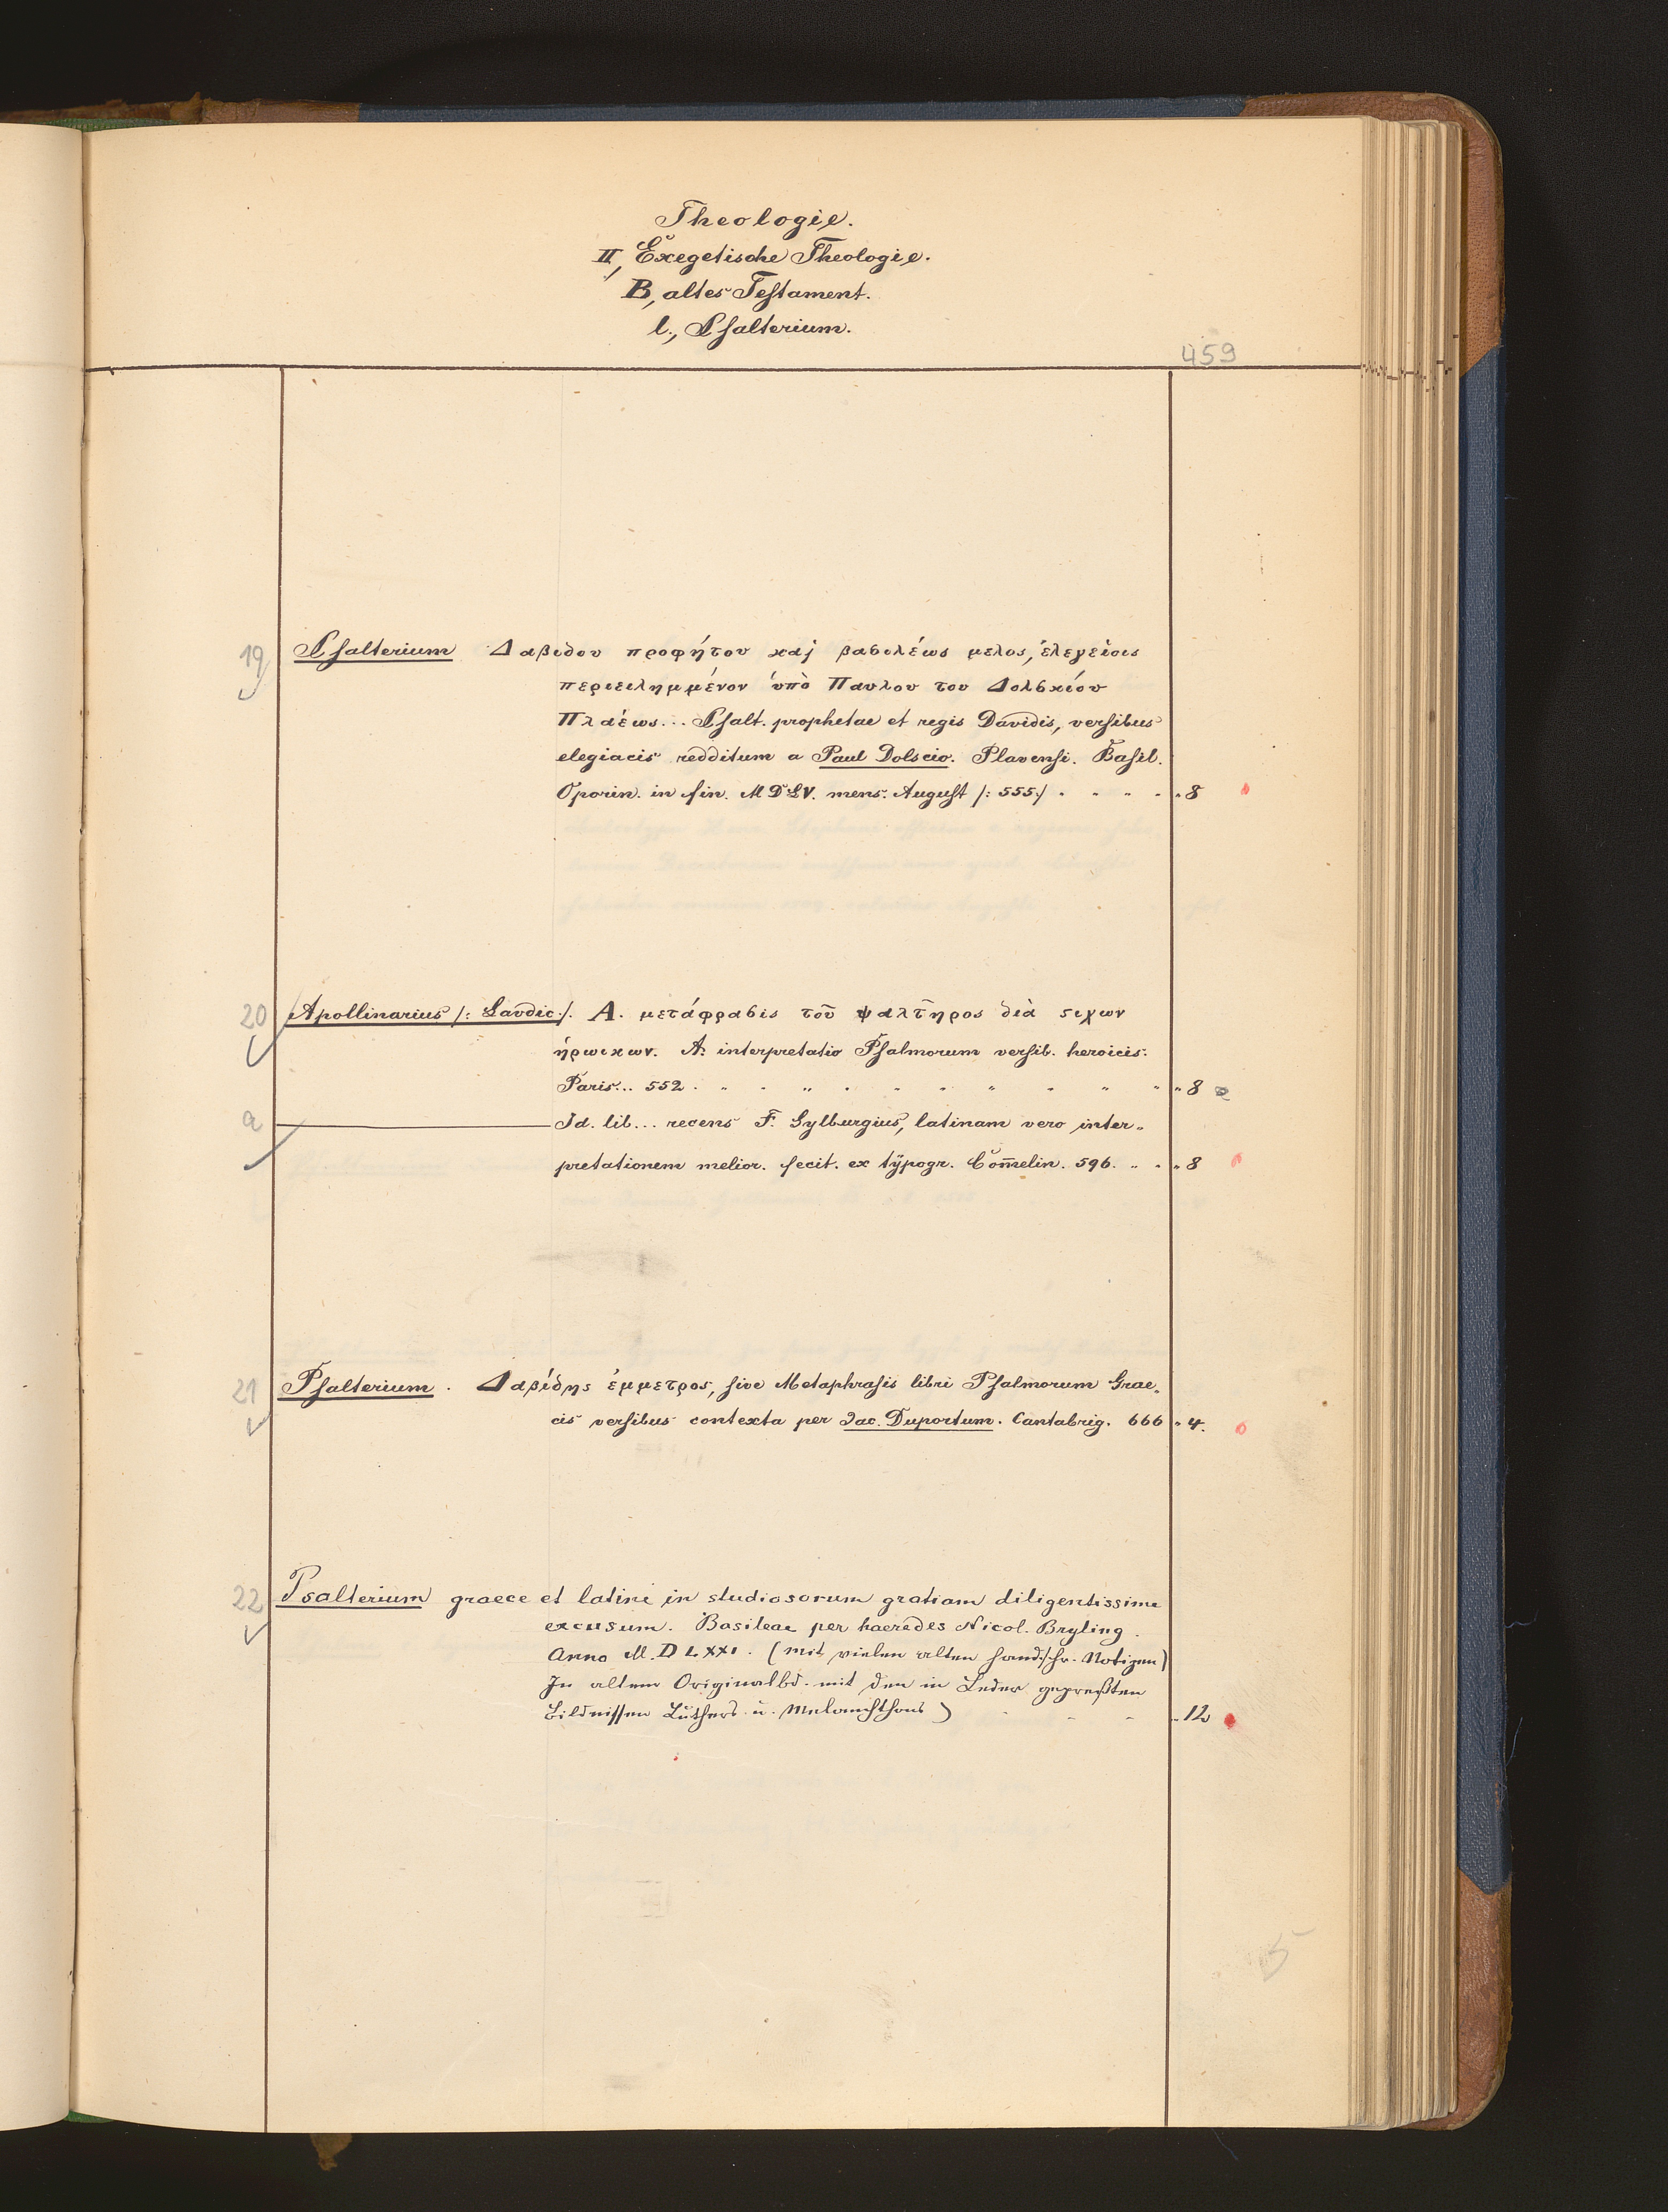 Theologie.
II, Exegetische Theologie.
B, altes Testament.
l., Psalterium.
459
19 Psalterium Δαβιδου προφήτου καὶ βασιλέως μελος, ἐλεγείοις
περιειλημμένον ὑπὸ Παυλου του Δολσκίου
Πλαέως... Psalt. prophetae et regis Davidis, versibus
elegiacis redditum a Paul Dolscio. Plavensi. Basil.
Oporin. in fin. MDLV. mens. August /: 555 :/ . . . . . 8
20 Apollinarius /: Laodic :/. A. μετάφρασις τοῦ ψαλτῆρος διὰ στιχων
ἡρωικων. A. interpretatio Psalmorum versib. heroicis.
Paris... 552 . . . . . . . . . . 8
a Id. lib... recens F. Sylburgius, latinam vero inter-
pretationem melior. fecit. ex typogr. Com̄elin. 596. . . 8
21 Psalterium. Δαβίδης ἐμμετρος, sive Metaphrasis libri Psalmorum Grae-
cis versibus contexta per Jac. Duportum. Cantabrig. 666 . 4.
22 Psalterium graece et latine in studiosorum gratiam diligentissime
excusum. Basileae per haeredes Nicol. Bryling.
Anno M.D LXXI. (mit vielen alten handschr. Notizen)
In altem Originalbd. mit den in Leder gepreßten
Bildnissen Luthers u. Melanchthons) . . . 12